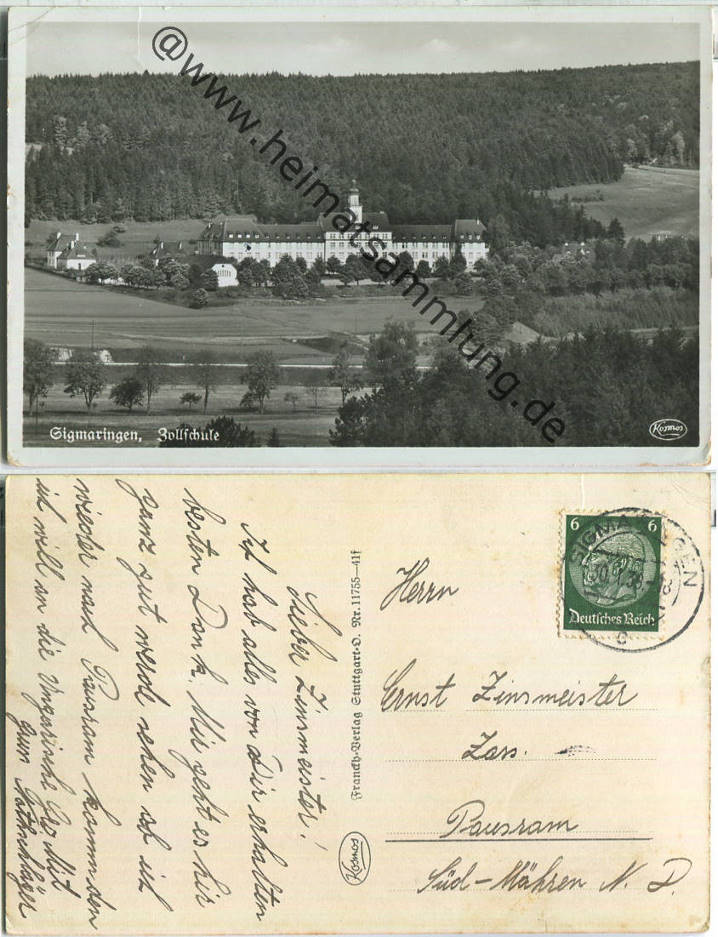 @www.heimatsammlung.de
Sigmaringen, Zollschule
Kosmos
Lieber Zinsmeister!
Ich hab alles von Dir erhalten
besten Dank. Mir geht es hir
ganz gut werde sehen ob ich
wieder nach Pausram komm den
ich will an die Ungarische Mit
grus
Franckh-Verlag Stuttgart-O. Nr. 11755-41f
Kosmos
6 6
Deutsches Reich
SIGMARINGEN
Herrn
Ernst Zinsmeister
Zass.
Pausram
Süd-Mähren N. D.